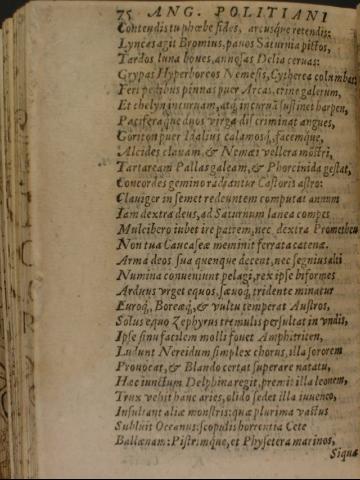 75 ANG. POLITIANI
Contendis tu phœbe fides, arcusque retendis:
Lyncas agit Bromius, pauos Saturnia pictos,
Tardos luna boues, annosas Delia ceruas:
Grypas Hyperboreos Nemesis, Cytherea columbas:
Fert pedibus pinnas puer Arcas, crine galerum,
Et chelyn incuruam, atq; incuruā sustinet harpen,
Pacifera que duos virga discriminat angues,
Goriton puer Idalius calamosq;, facemque,
Alcides clauam, & Nemæi vellera mōstri,
Tartaream Pallas galeam, & Phorcinida gestat,
Concordes gemino radiantur Castoris astro:
Clauiger in semet redeuntem computat annum
Iam dextra deus, ad Saturnum lanea compes
Mulcibero iubet ire patrem, nec dextra Prometheu
Non tua Caucaseæ meminit ferrata catenæ.
Arma deos sua quenque decent, nec segnius alti
Numina conueniunt pelagi, rex ipse biformes
Arduus vrget equos, sæuoq; tridente minatur
Euroq;, Boreæq;, & vultu temperat Austros,
Solus equo Zephyrus tremulis persultat in vndis,
Ipse sinu facilem molli fouet Amphitriten,
Ludunt Nereidum simplex chorus, illa sororem
Prouocat, & Blando certat superare natatu,
Hæc iunctum Delphina regit, premit illa leonem,
Trux vehit hanc aries, olido sedet illa iuuenco,
Insultant aliæ monstris: quæ plurima vastus
Subluit Oceanus: scopulis horrentia Cete
Ballænam: Pistrimque, et Physetera marinos,
Siqua